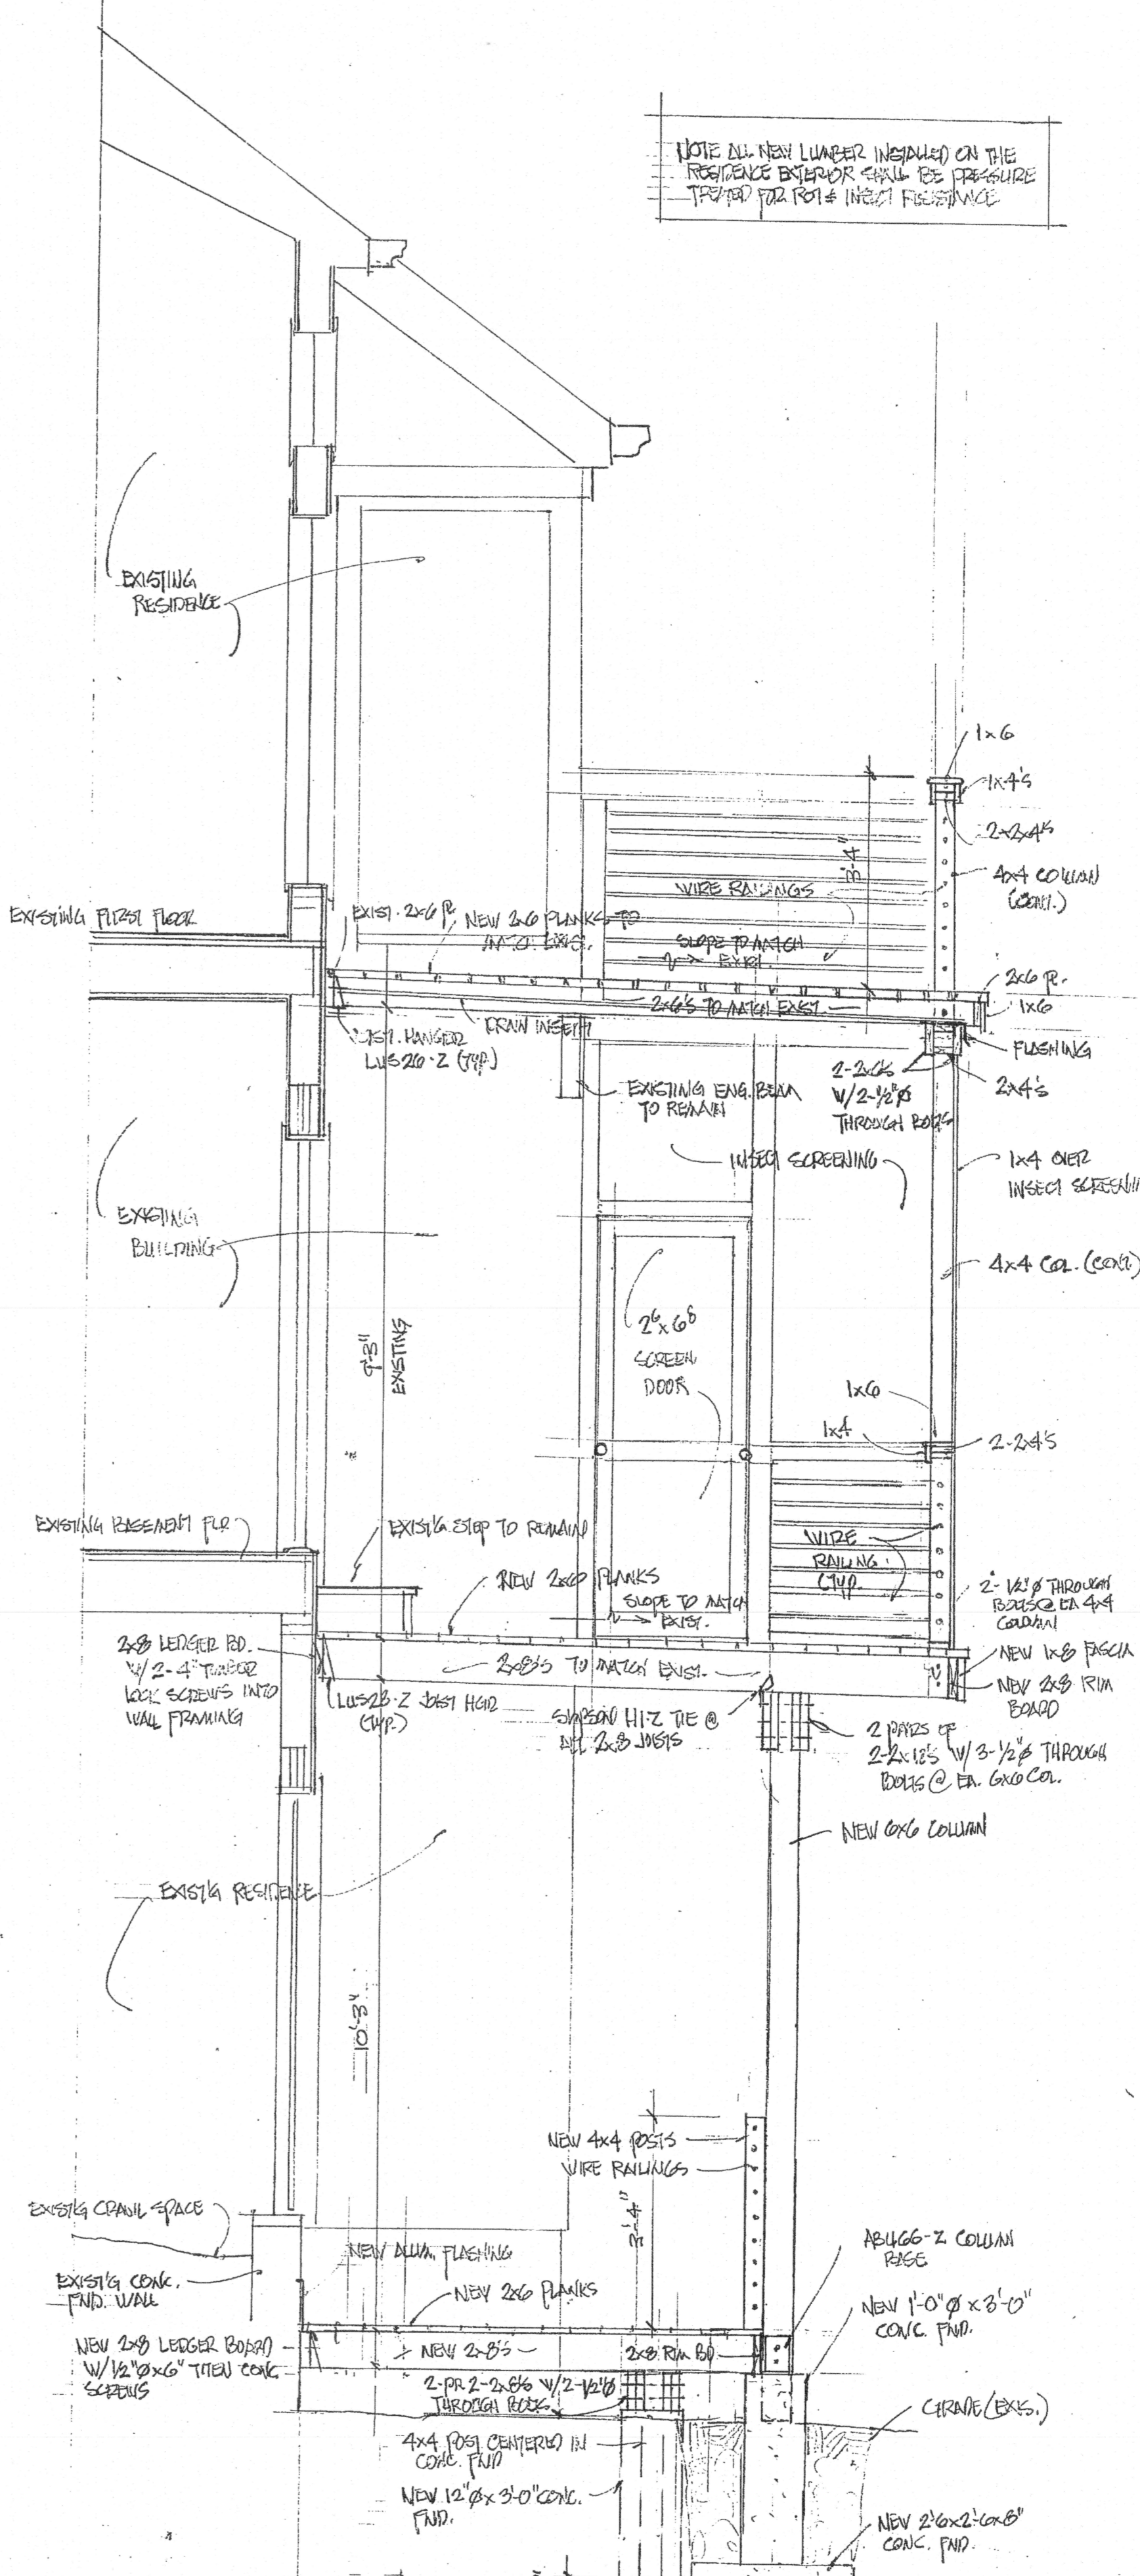 NOTE ALL NEW LUMBER INSTALLED ON THE
RESIDENCE EXTERIOR SHALL BE PRESSURE
TREATED FOR ROT & INSECT RESISTANCE
EXISTING
RESIDENCE
1x6
1x4's
2-2x4's
4x4 COLUMN
(CONT.)
3'-4"
WIRE RAILINGS
EXISTING FIRST FLOOR
EXIST. 2x6 PL.
NEW 2x6 PLANKS TO
MATCH EXIST.
SLOPE TO MATCH
EXIST.
2x6'S TO MATCH EXIST.
2x6 PL.
1x6
FLASHING
JOIST HANGER
LUS26-Z (TYP.)
DRAIN INSET
EXISTING ENG. BEAM
TO REMAIN
2-2x6's
W/2-1/2"Ø
THROUGH BOLTS
2x4's
INSECT SCREENING
1x4 OVER
INSECT SCREENI
EXISTING
BUILDING
4x4 COL. (CONT.)
9'-3"
EXISTING
2⁶x6⁸
SCREEN
DOOR
1x6
1x4
2-2x4's
EXISTING BASEMENT FLR
EXIST'G STEP TO REMAIN
NEW 2x6 PLANKS
SLOPE TO MATCH
EXIST.
WIRE
RAILING
(TYP.
2-1/2"Ø THROUGH
BOLTS @ EA 4x4
COLUMN
2x8 LEDGER BD.
W/ 2-4" TIMBER
LOCK SCREWS INTO
WALL FRAMING
2x8'S TO MATCH EXIST.
LUS28-Z JOIST HGR
(TYP.)
SIMPSON H1-Z TIE @
ALL 2x8 JOISTS
NEW 1x8 FASCIA
NEW 2x8 RIM
BOARD
2 PAIRS OF
2-2x12'S W/ 3-1/2"Ø THROUGH
BOLTS @ EA. 6x6 COL.
NEW 6x6 COLUMN
EXIST'G RESIDENCE
10'-3"
NEW 4x4 POSTS
WIRE RAILINGS
3'-4"
EXIST'G CRAWL SPACE
NEW ALUM. FLASHING
EXIST'G CONC.
FND. WALL
NEW 2x6 PLANKS
AB466-Z COLUMN
BASE
NEW 1'-0"Ø x 3'-0"
CONC. FND.
NEW 2x8 LEDGER BOARD
W/ 1/2"Øx6" TITEN CONC.
SCREWS
NEW 2x8'S
2x8 RIM BD
2-PR 2-2x8'S W/2-1/2"Ø
THROUGH BOLTS
GRADE (EXIS.)
4x4 POST CENTERED IN
CONC. FND
NEW 12"Ø x 3'-0" CONC.
FND.
NEW 2'-6x2'-6x8"
CONC. FND.